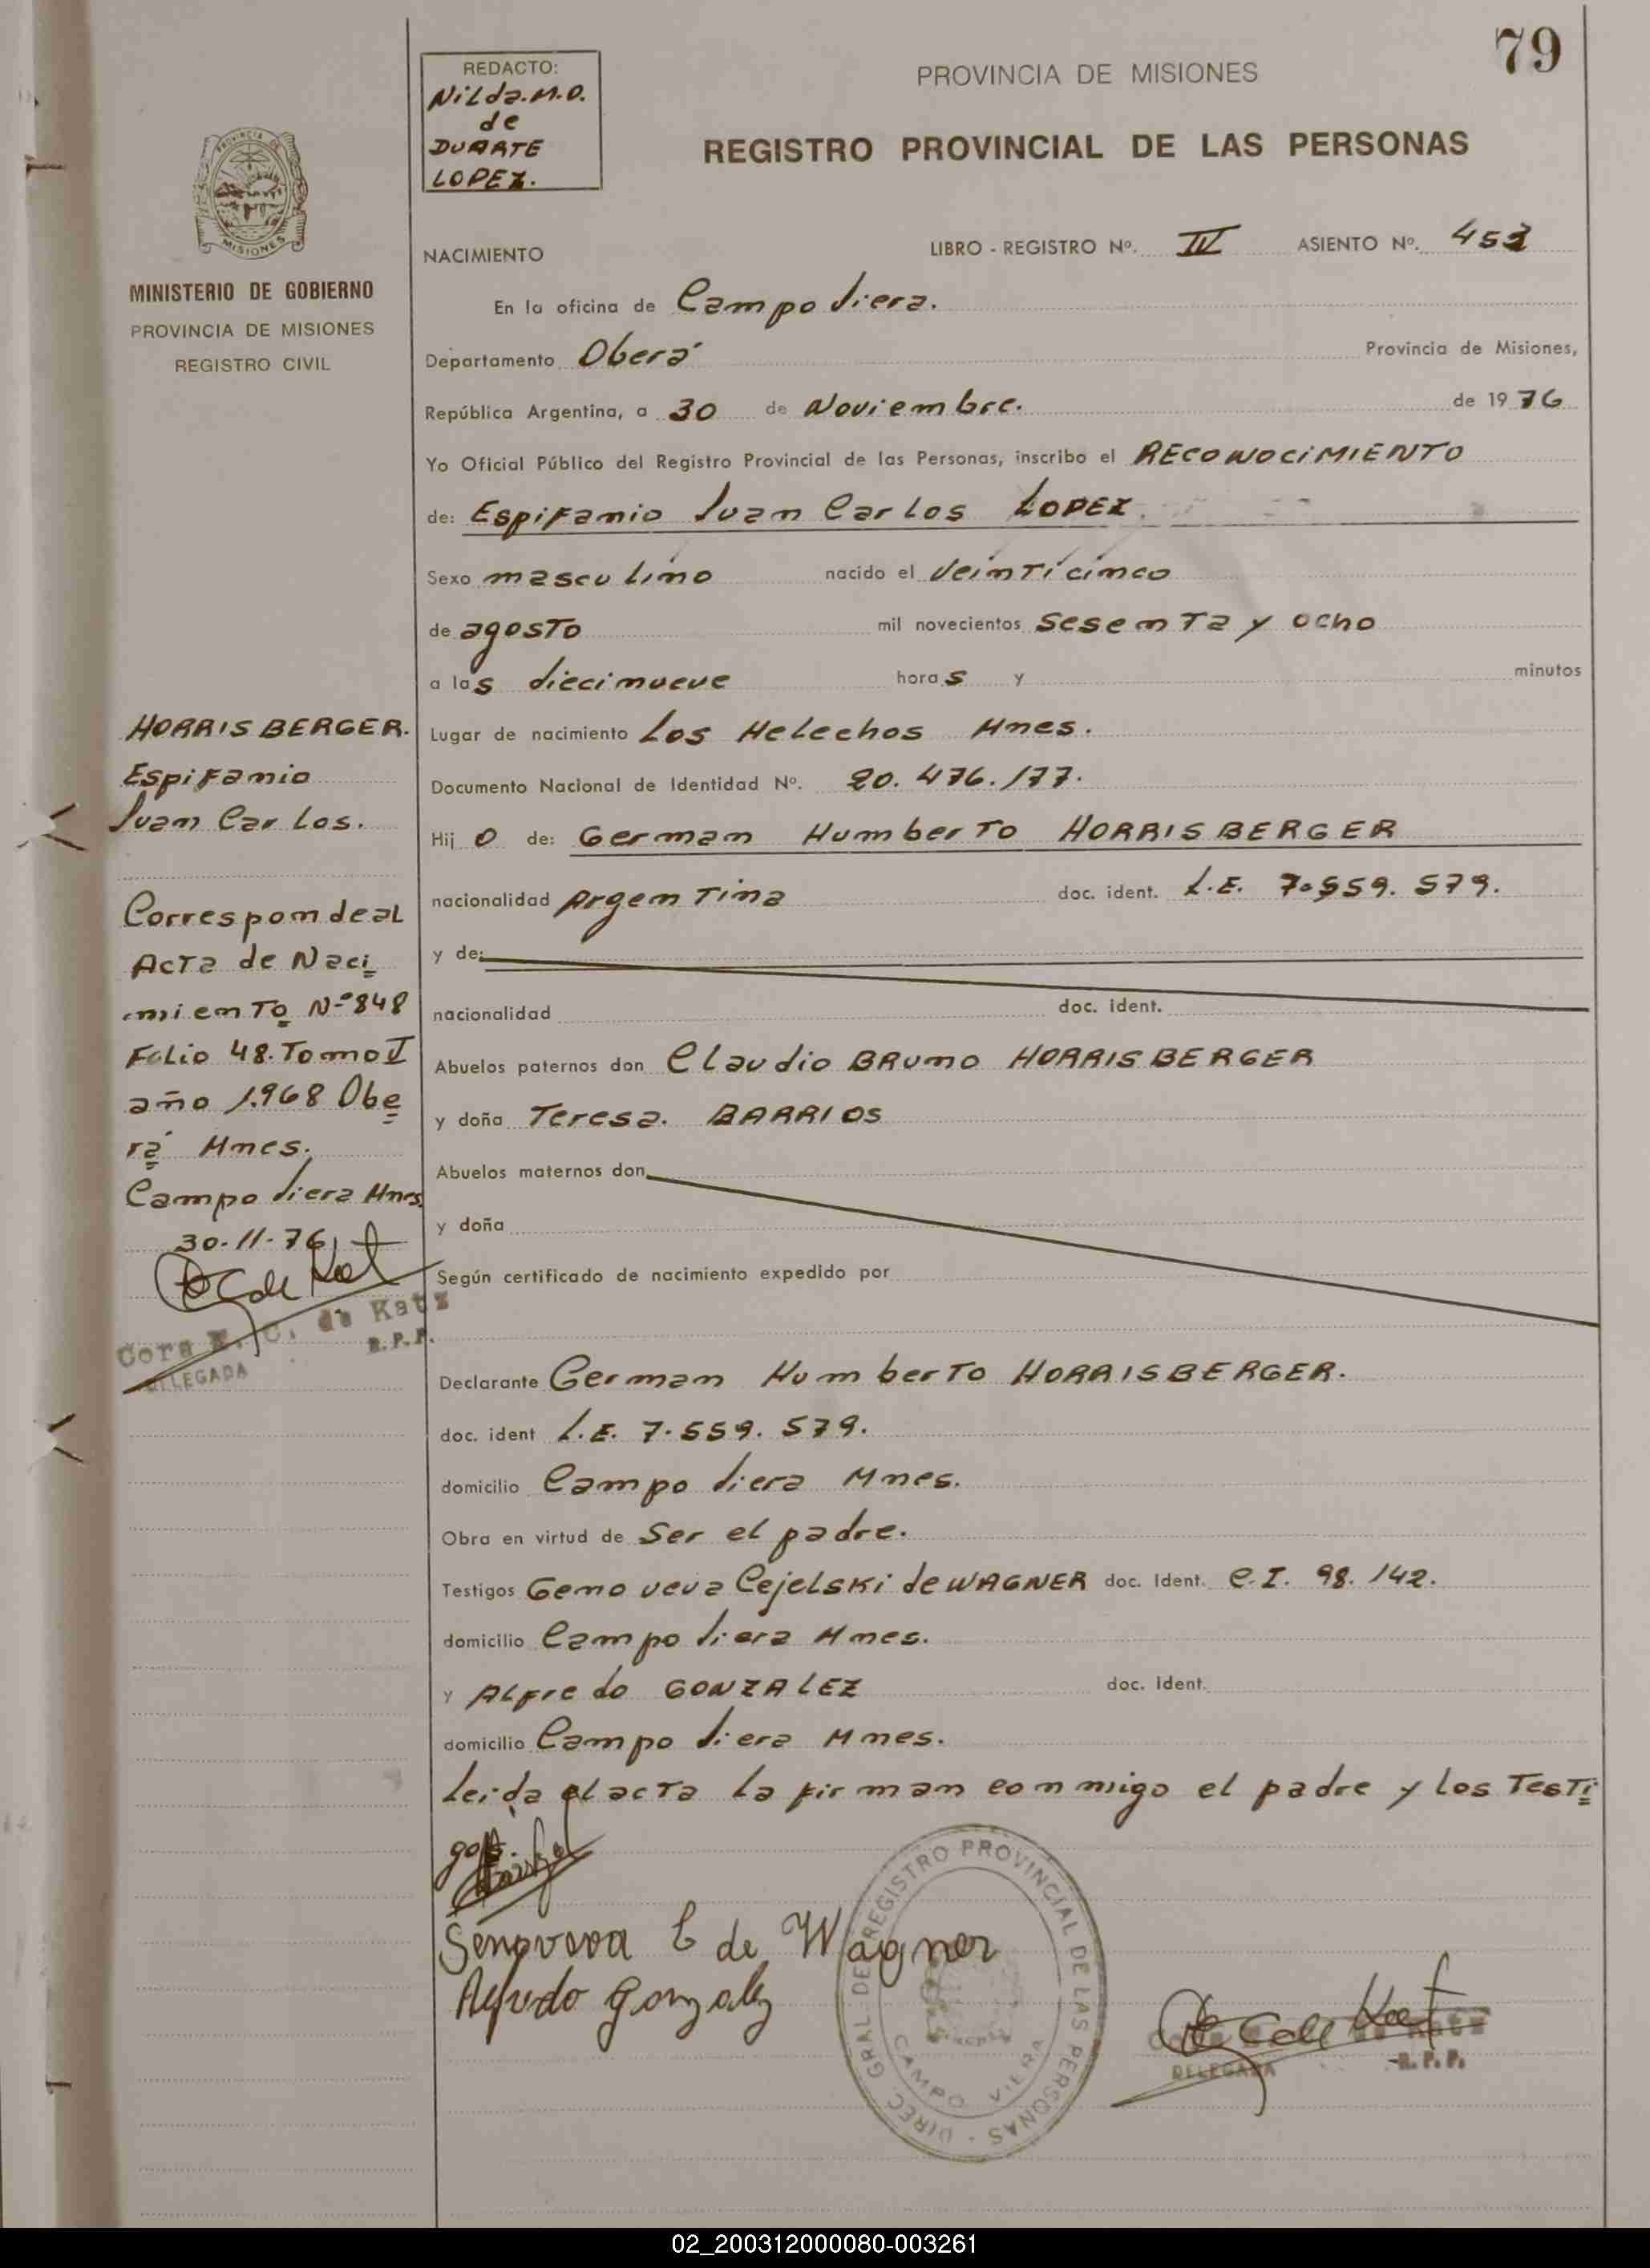 79
REDACTO:
Nilda.M.O.
de
DUARTE
LOPEZ.
PROVINCIA DE MISIONES
REGISTRO PROVINCIAL DE LAS PERSONAS
PROVINCIA
MISIONES
MINISTERIO DE GOBIERNO
PROVINCIA DE MISIONES
REGISTRO CIVIL
NACIMIENTO LIBRO - REGISTRO Nº. IV ASIENTO Nº. 453
En la oficina de Campo Viera.
Departamento Oberá Provincia de Misiones,
República Argentina, a 30 de Noviembre. de 1976
Yo Oficial Público del Registro Provincial de las Personas, inscribo el RECONOCIMIENTO
de: Espifanio Juan Carlos LOPEZ.
Sexo masculino nacido el veinticinco
de agosto mil novecientos sesenta y ocho
a las diecinueve horas y minutos
Lugar de nacimiento Los Helechos Mnes.
Documento Nacional de Identidad Nº. 20.476.177.
Hijo de: German Humberto HORRISBERGER
nacionalidad Argentina doc. ident. L.E. 7.559.579.
y de:
nacionalidad doc. ident.
Abuelos paternos don Claudio BRUNO HORRISBERGER
y doña Teresa. BARRIOS
Abuelos maternos don
y doña
Según certificado de nacimiento expedido por
Declarante German Humberto HORRISBERGER.
doc. ident L.E. 7.559.579.
domicilio Campo Viera Mnes.
Obra en virtud de Ser el padre.
Testigos Genoveva Cejelski de WAGNER doc. Ident. C.I. 98.142.
domicilio Campo Viera Mnes.
y Alfredo GONZALEZ doc. Ident.
domicilio Campo Viera Mnes.
Leida el acta la firman conmigo el padre y los Testi
gos.
HORRISBERGER.
Espifanio
Juan Carlos.
Corresponde al
Acta de Naci
miento Nº 848
Folio 48. Tomo V
año 1.968 Obe
rá Mnes.
Campo Viera Mnes.
30-11-76
C de Kat
Cora C. de Katz
DELEGADA R.P.P.
Genoveva C de Wagner
Alfredo Gonzalez
DIREC. GRAL. DE REGISTRO PROVINCIAL DE LAS PERSONAS
CAMPO VIERA
C de Kat
DELEGADA R.P.P.
02_200312000080-003261